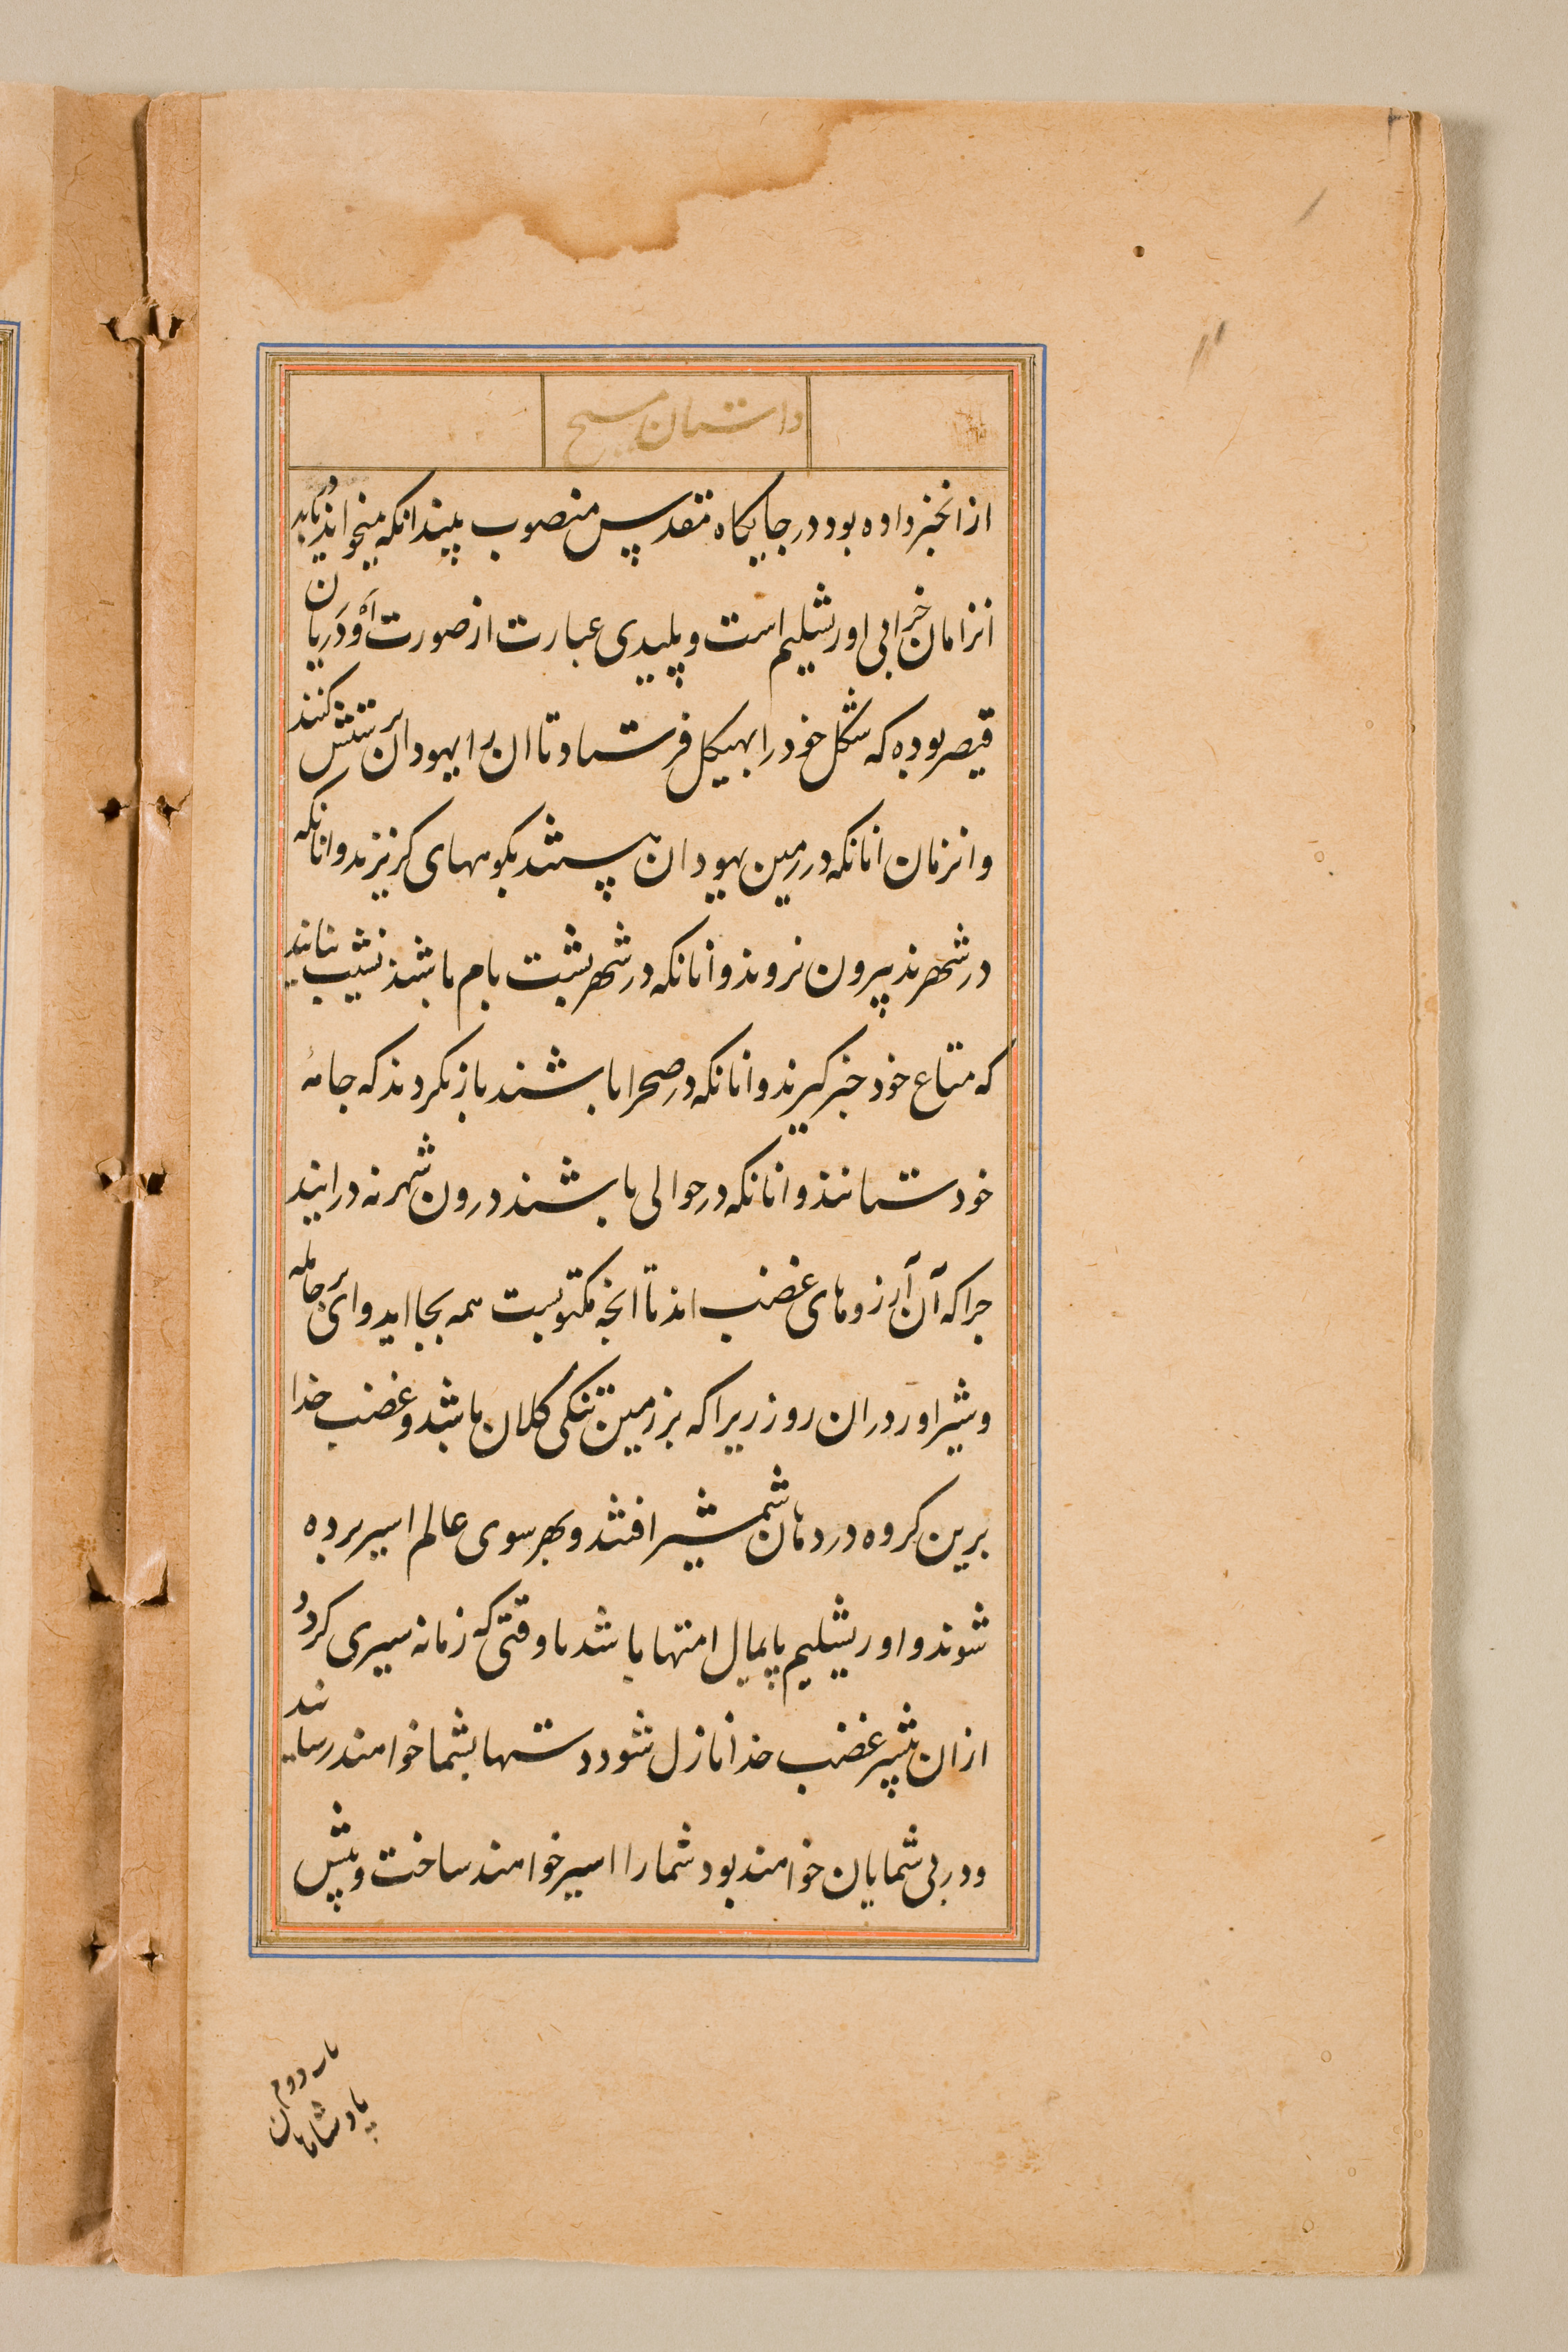 داستان مسیح
ازانخبر داده بود در جایکاه مقدس منصوب بیند انکه میخواند دریابد
انزمان خرابی اورشلیم است و پلیدی عبارت از صورت اَدْرَیان
قیصر بوده که شکل خود را بهیکل فرستاد تا ان را یهودان پرستش کنند
و انزمان انانکه در زمین یهودان هستند بکوههای کریزند و انانکه
در شهرند بیرون نروند و انانکه در شهر بشت بام باشند نشیب نیایند
که متاع خود خبر کیرند و انانکه در صحرا باشند باز نکردند که جامهٔ
خود ستانند و انانکه در حوالی باشند درون شهر نه درایند
جرا که آن آرزوهای غضب اند تا انجه مکتوبست همه بجا اید وای بر حامله
و شیراور دران روز زیرا که بر زمین تنکی کلان باشد و غضب خدا
برین کروه در دهان شمشیر افتند و بهر سوی عالم اسیر برده
شوند و اورشلیم پایمال امتها باشد تا وقتی که زمانه سپری کردد
ازان بیشر غضب خدا نازل شود دستها بشما خواهند رسانید
و در پی شمایان خواهند بود شما را اسیر خواهند ساخت و پیش
بار دوم
پادشاهان